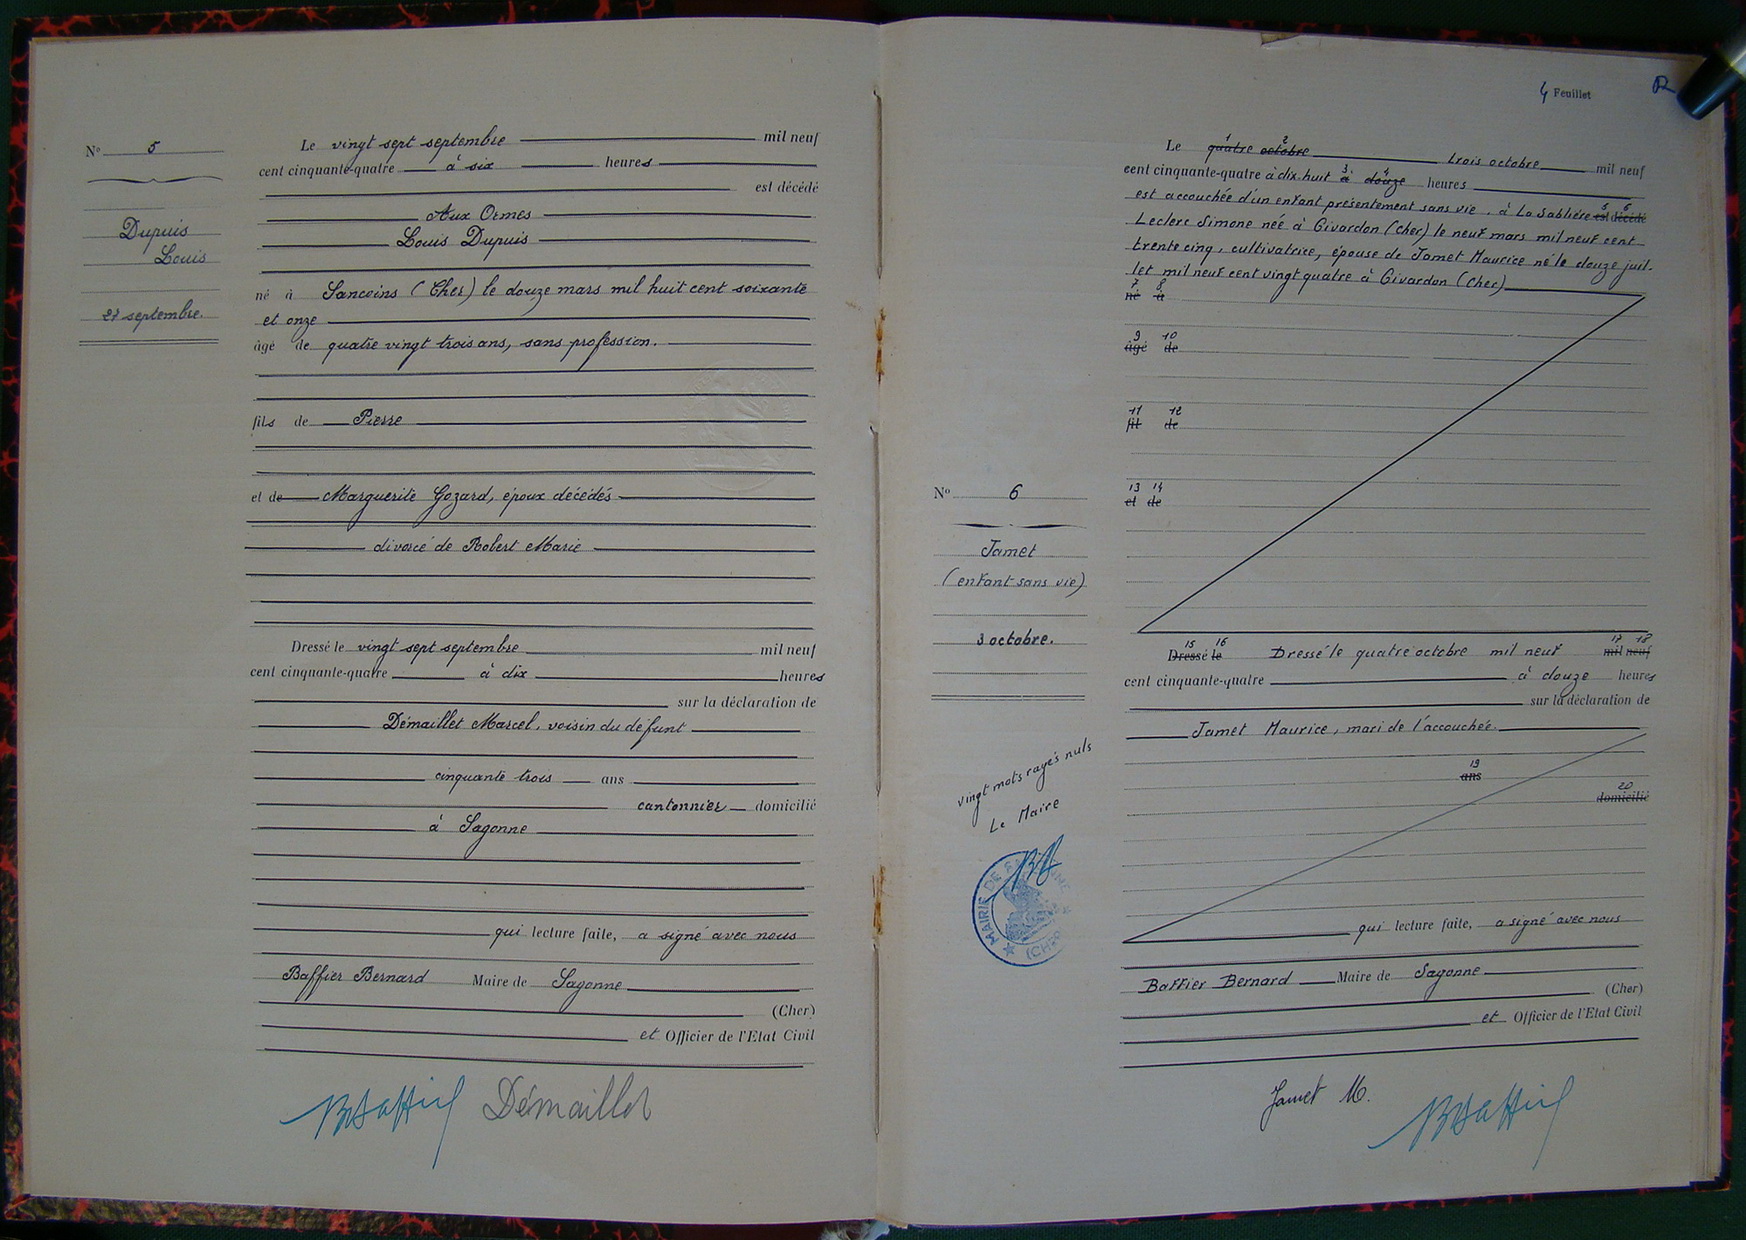 Nº 5
Dupuis
Louis
27 septembre.
Le vingt sept septembre mil neuf
cent cinquante-quatre à six heures
est décédé
Aux Ormes
Louis Dupuis
né à Sancoins (Cher) le douze mars mil huit cent soixante
et onze
âgé de quatre vingt trois ans, sans profession.
fils de Pierre
et de Marguerite Gozard, époux décédés
divorcé de Robert Marie
Dressé le vingt sept septembre mil neuf
cent cinquante-quatre à dix heures
sur la déclaration de
Démaillet Marcel, voisin du défunt
cinquante trois ans
cantonnier domicilié
à Sagonne
qui lecture faite, a signé avec nous
Baffier Bernard Maire de Sagonne
(Cher)
et Officier de l'Etat Civil
Démaillet
4 Feuillet
Nº 6
Jamet
(enfant sans vie)
3 octobre.
vingt mots rayés nuls
Le Maire
MAIRIE DE
(CHER)
1 2
Le quatre octobre trois octobre mil neuf
3 4
cent cinquante-quatre à dix-huit à douze heures
5 6
est accouchée d'un enfant présentement sans vie, à La Sablière est décédé
Leclerc Simone née à Givardon (Cher) le neuf mars mil neuf cent
trente cinq, cultivatrice, épouse de Jamet Maurice né le douze juil-
let mil neuf cent vingt quatre à Givardon (Cher)
7 8
né à
9 10
âgé de
11 12
fil de
13 14
et de
15 16 17 18
Dressé le Dressé le quatre octobre mil neuf mil neuf
cent cinquante-quatre à douze heures
sur la déclaration de
Jamet Maurice, mari de l'accouchée.
19
ans
20
domicilié
qui lecture faite, a signé avec nous
Baffier Bernard Maire de Sagonne
(Cher)
et Officier de l'Etat Civil
Jamet M.